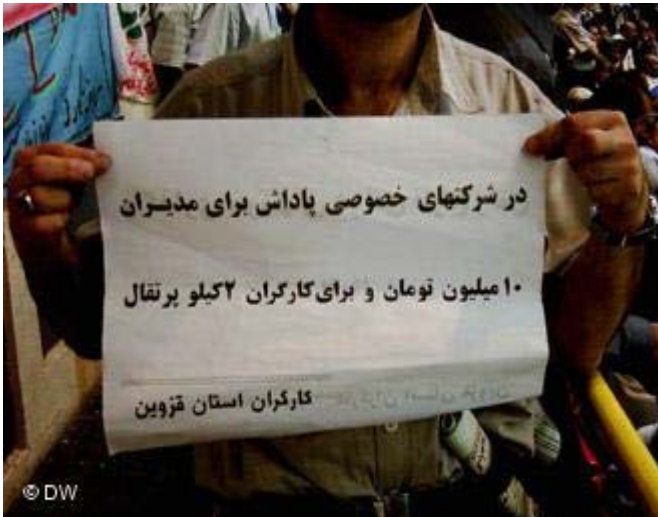 در شرکتهای خصوصی پاداش برای مدیـران
۱۰ میلیون تومان و برای کارگران ۲ کیلو پرتقال
کارگران استان قزوین
© DW